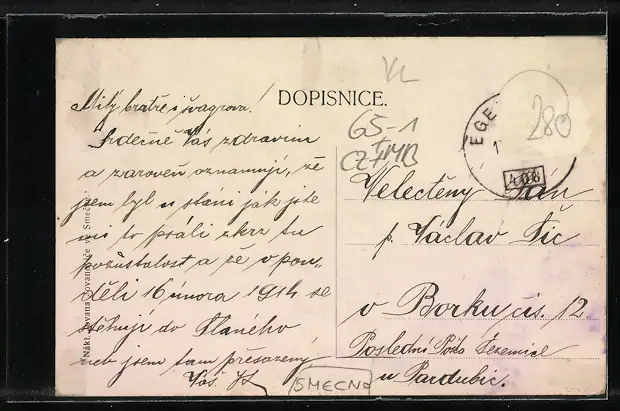 Milý bratře i švagrova!
Srdečně Vás zdravím
a zároveň oznamuji, že
jsem byl u stání jak jste
mi to práli skrz tu
pozůstalost a že v pon„
děli 16 února 1914 se
stěhuji do Slaného
neb jsem tam přesazený
Váš
DOPISNICE.
VL
65-1
CZ IMB
EGE
1
280
408
Velectěný Pán
p. Václav Šíc
v Borku čís. 12
Poslední Pošta Sezemice
u Pardubic.
SMECNO
Nákl. Ivana Jovanoviče ve Smečně.